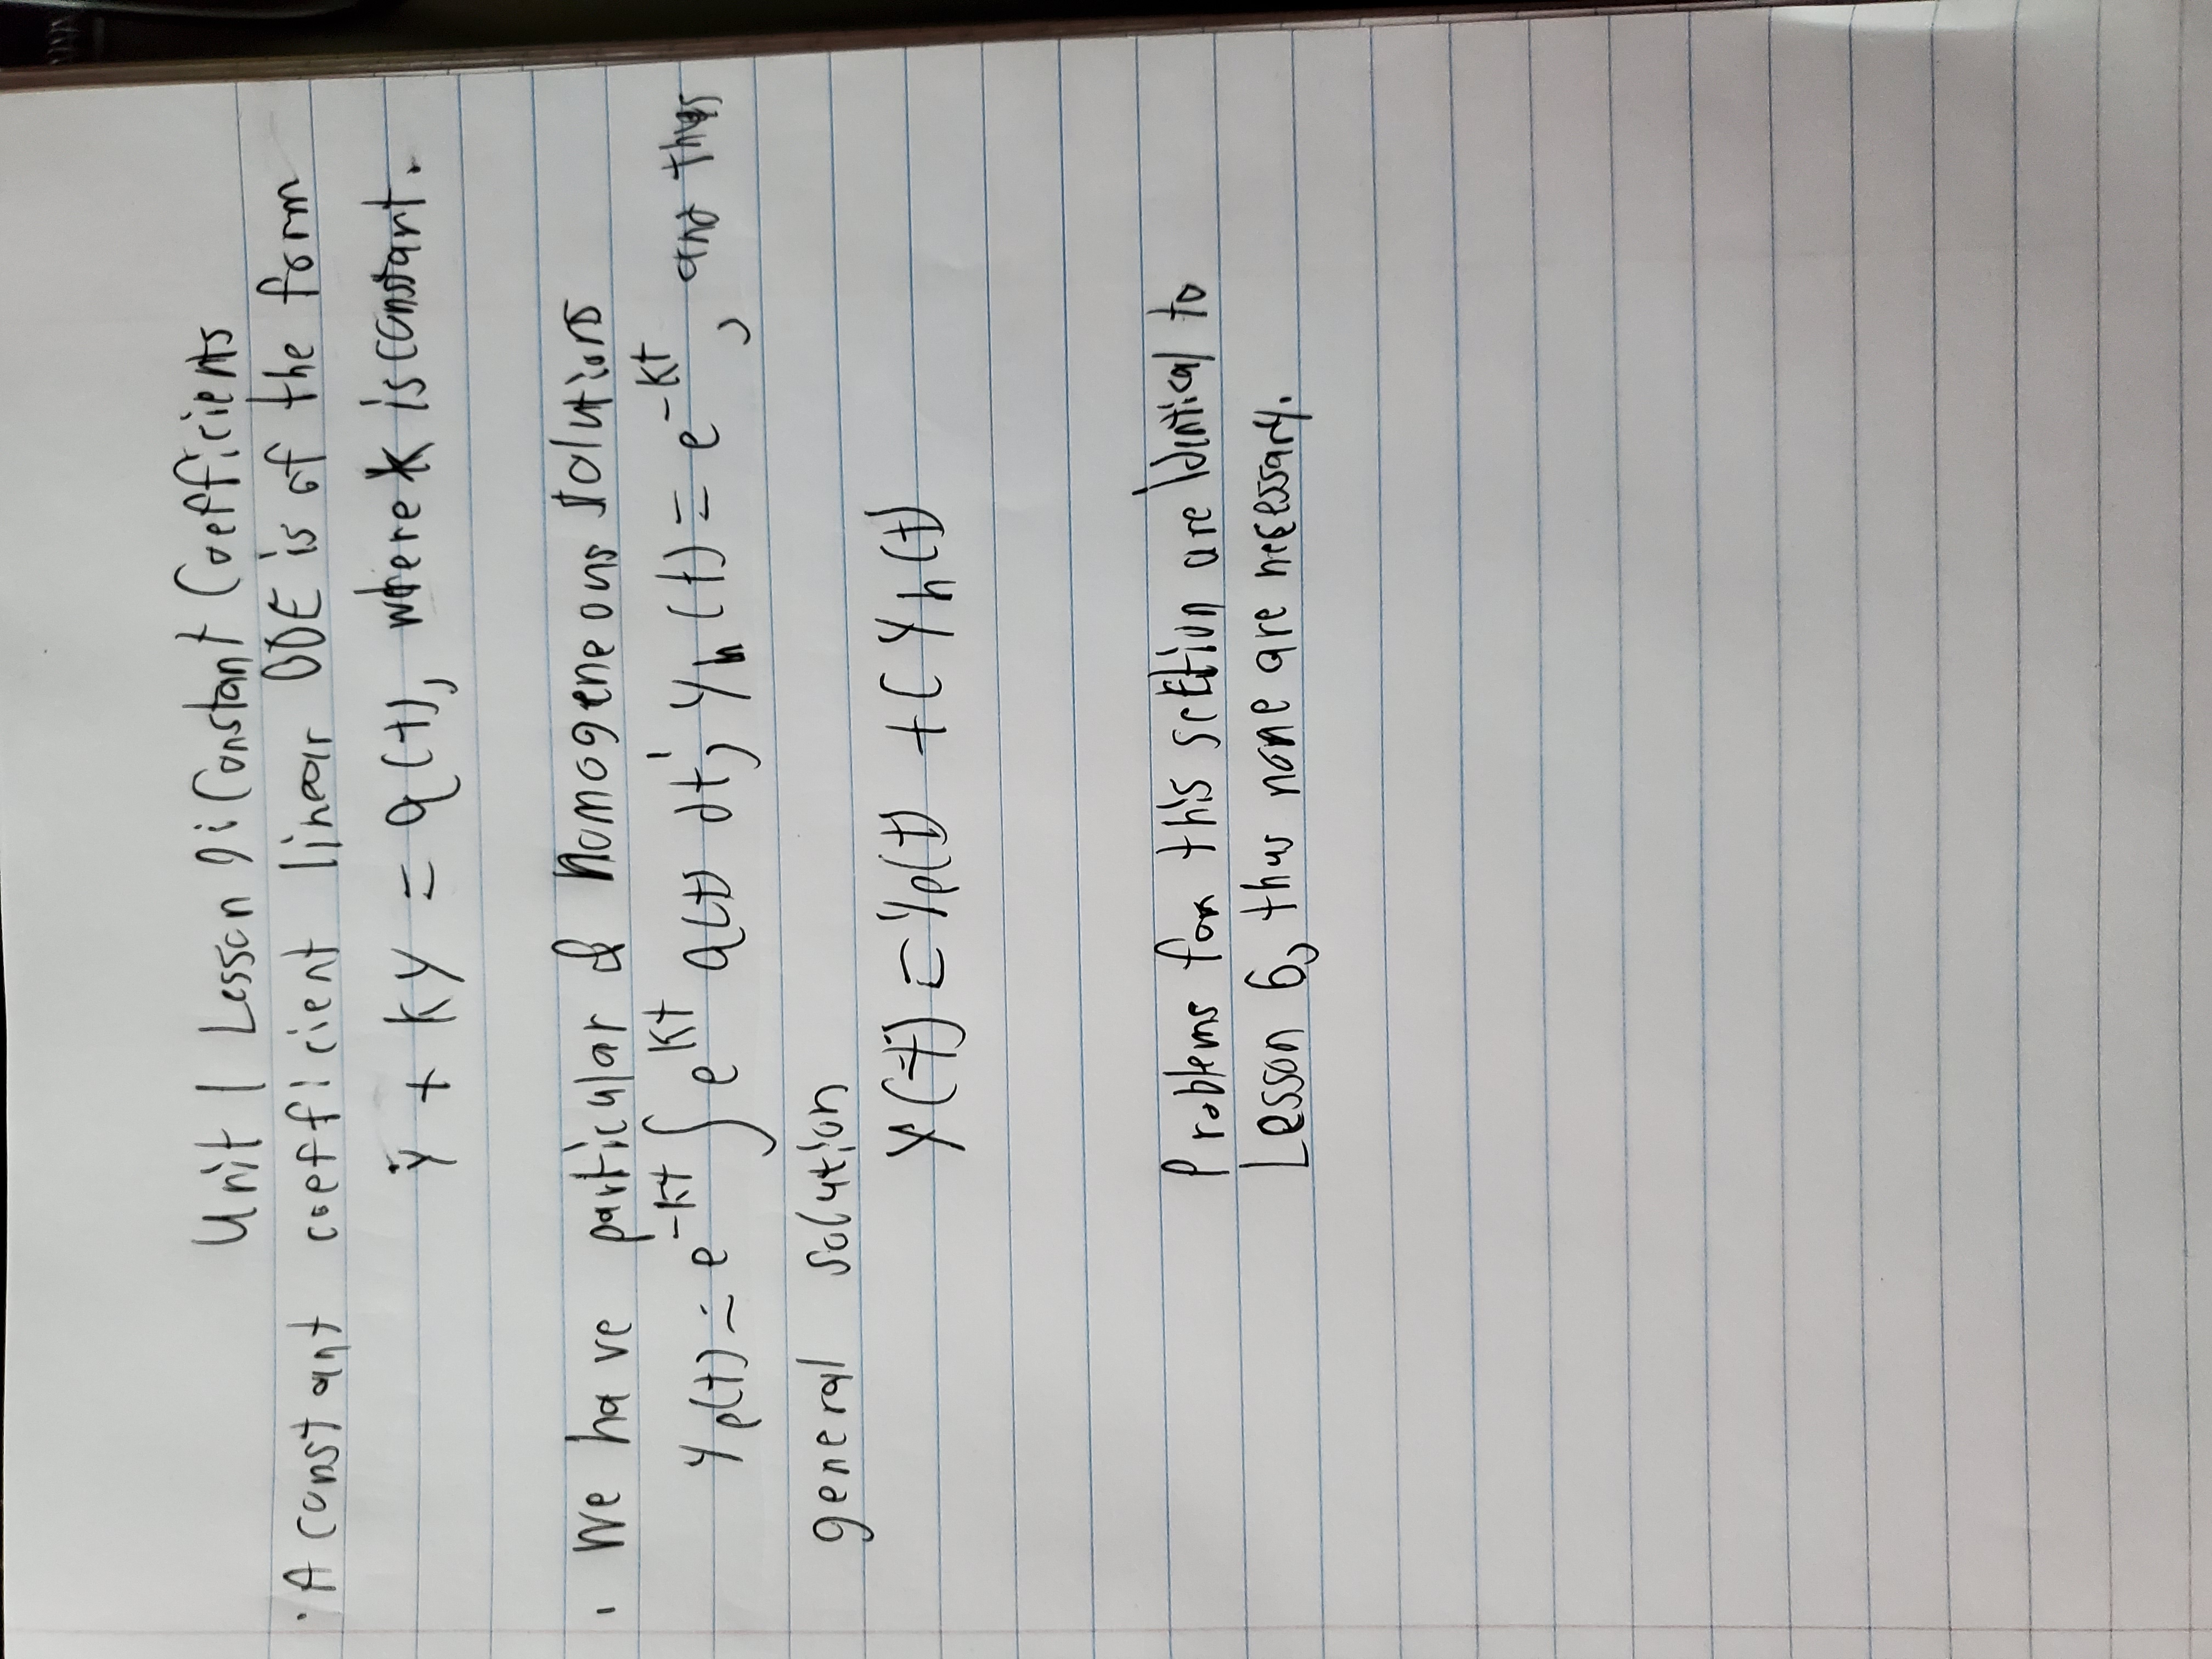 Unit 1 Lesson 9: Constant Coefficients
· A constant coefficient linear ODE is of the form
ẏ + ky = q(t), where k is constant.
· We have particular & homogeneous solutions
y_p(t) = e^{-kt} ∫ e^{kt} q(t) dt; y_h(t) = e^{-kt}, and thus
general solution
y(t) = y_p(t) + C y_h(t)
Problems for this section are identical to
Lesson 6, thus none are necessary.